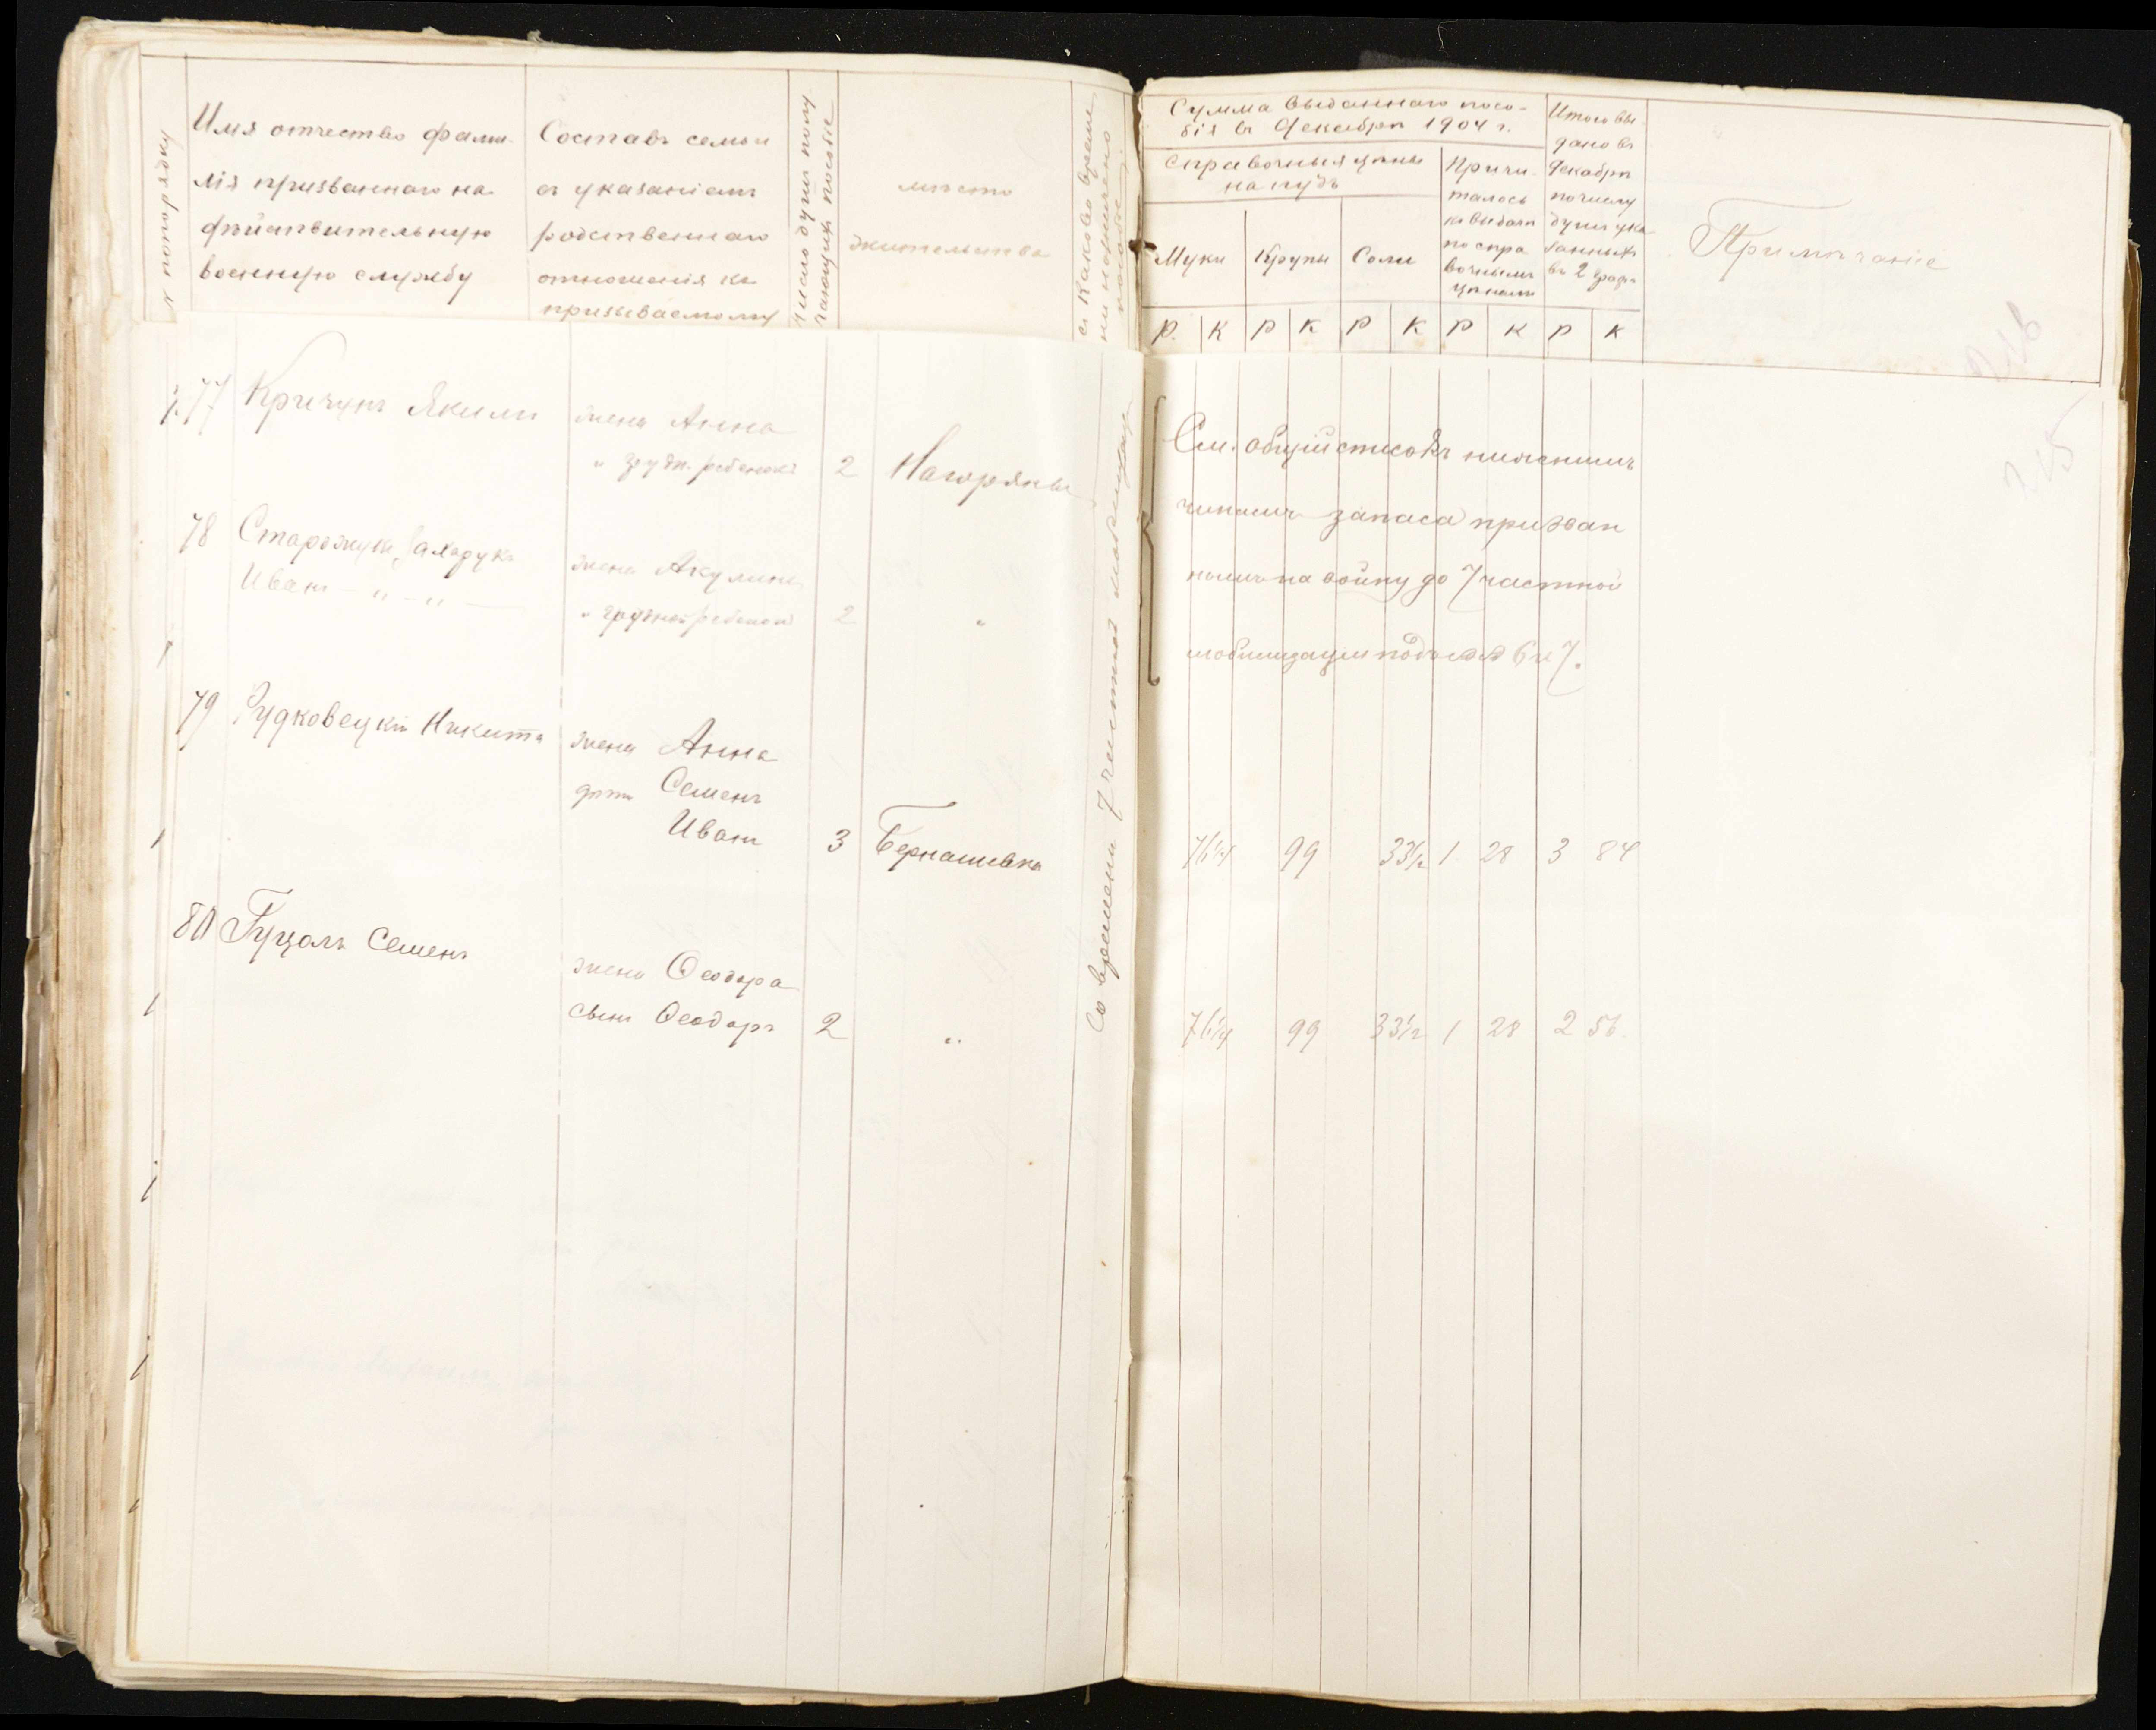 № по порядку
Имя отчество фами-
лія призваннаго на
дѣйствительную
военную службу
Составъ семьи
съ указаніемъ
родственнаго
отношенія къ
призываемому
Число душъ полу-
чающихъ пособіе
мѣсто
жительства
съ какого време
ни назначено
пособіе
Сумма выданнаго посо-
бія въ Декабрѣ 1904 г.
Справочныя цѣны
на пудъ
Муки
Крупы
Соли
Причи-
талось
къ выдачѣ
по спра
вочнымъ
цѣнамъ
Итого вы-
дано въ
Декабрѣ
по числу
душъ ука
занныхъ
въ 2 графѣ
Примѣчаніе
Р. К Р К Р К Р К Р К
216
215
77 Кричунъ Якимъ
жена Анна
" грудн. ребенокъ 2 Нагоряны
78
Иванъ - " - " -
жена Акулина
" грудной ребенокъ 2 "
См. общій списокъ нижнимъ
чинамъ запаса призван
нымъ на войну до 7 частной
мобилизаціи
79 Рудковецкій Никита
жена Анна
дѣти Семенъ
Иванъ 3 Бернашевка
76 1/4 99 33 1/2 1 28 3 84
80 Гуцолъ Семенъ
жена Ѳеодора
сынъ Ѳеодоръ 2 "
76 1/4 99 33 1/2 1 28 2 56.
Со времени 7 частной мобилизаціи